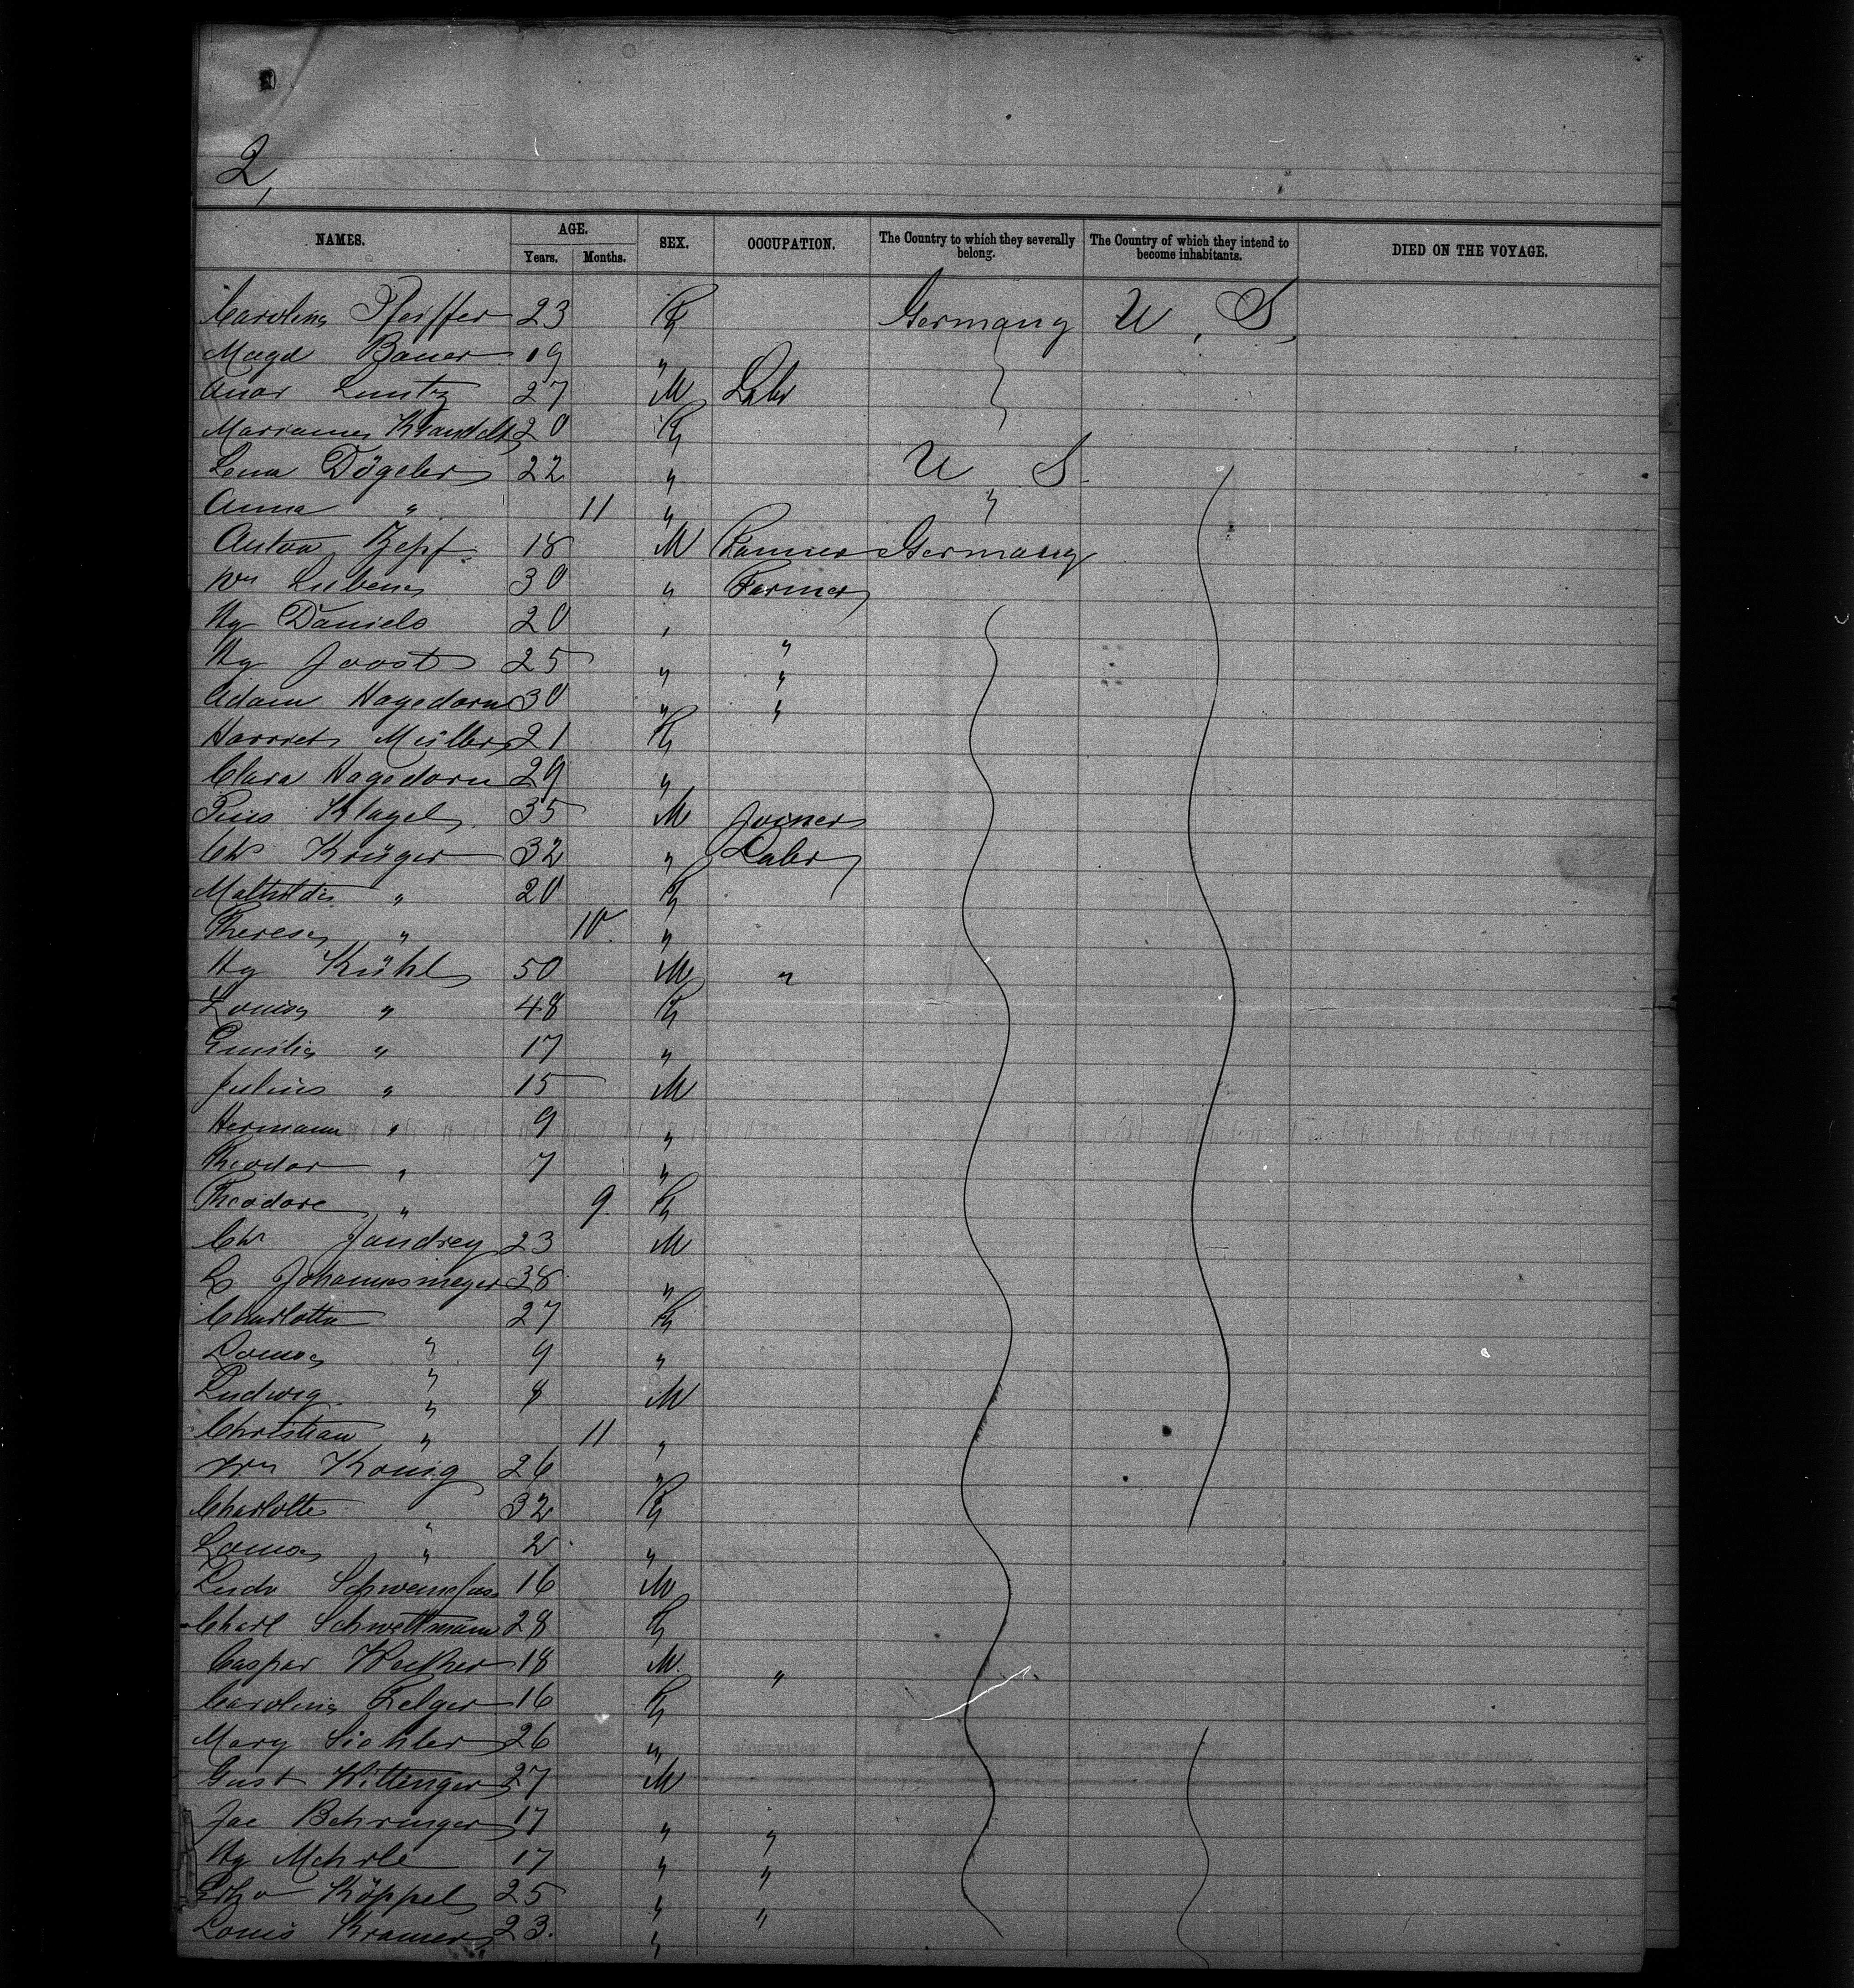 2,
NAMES. AGE. Years. Months. SEX. OCCUPATION. The Country to which they severally belong. The Country of which they intend to become inhabitants. DIED ON THE VOYAGE.
Caroline Pfeiffer 23 F Germany U. S.
Magd Bauer 19 "
Lentz 27 M Labr
20 F
Lena Dögeler 22 " U S.
Anna " 11 " "
Anton Zepf 18 M Germany
Wm Lubena 30 " Farmer
Hy Daniels 20 " "
Hy Joost 25 " "
Adam Hagedorn 30 " "
Harriet Müller 21 F
Clara Hagedorn 29 "
Pius Klagel 35 M Joiner
Chr Krüger 32 " Labr
Mathilde " 20 F
Therese " 10 "
Hy Kühl 50 M "
Louisa " 48 F
Emilie " 17 "
Julius " 15 M
Hermann " 9 "
Theodor " 7 "
Theodore " 9 F
Chr Jandrey 23 M
L Johannesmeyer 38 "
Charlotte 27 F
Louisa " 9 "
Ludwig " 8 M
Christian " 11 "
Wm König 26 "
Charlotte " 32 F
Louisa " 2 "
Ludv 16 M
Charl Schwettmann 28 F
Caspar Walther 18 M "
Caroline Zelger 16 F
Mary Sichler 26 "
Gust Wittenger 27 M
Jac Behringer 17 " "
Hy Mehrle 17 " "
Köppel 25 " "
Louis Kramer 23. "